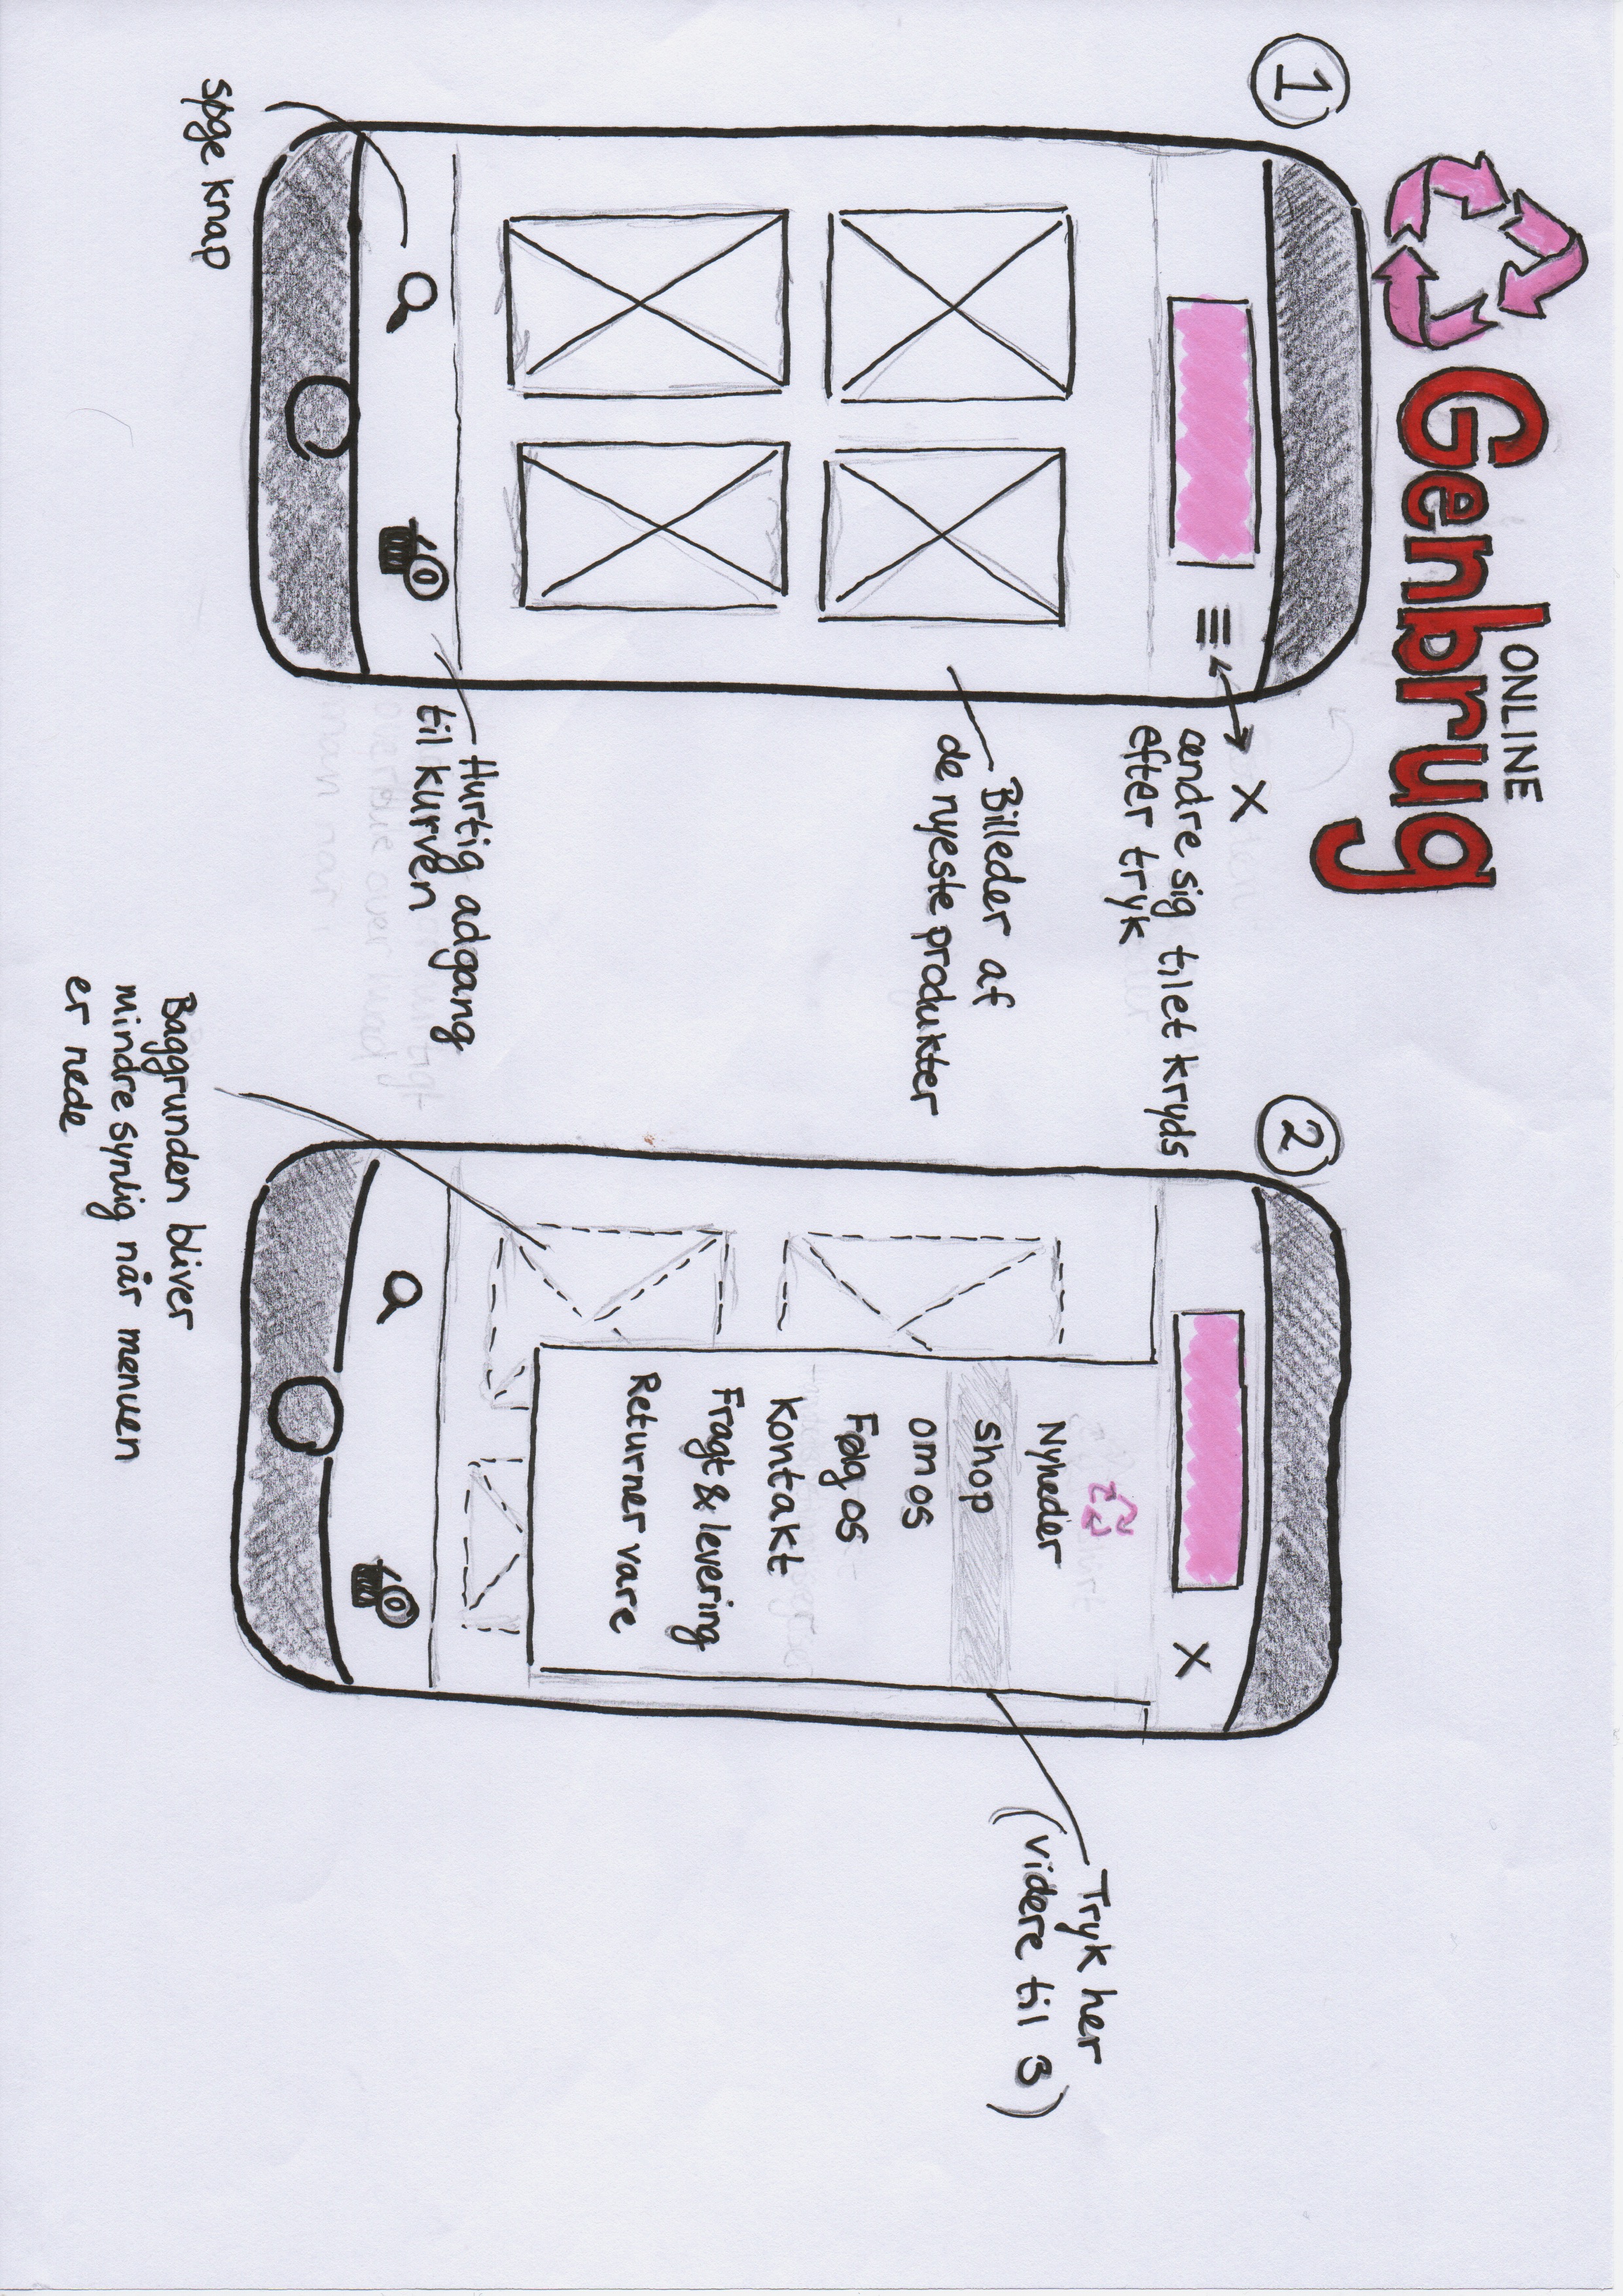 ONLINE
Genbrug
1
X
ændre sig tilet kryds
efter tryk
Billeder af
de nyeste produkter
0
Hurtig adgang
til kurven
søge knap
2
X
Nyheder
shop
om os
Følg os
kontakt
Fragt & levering
Returner vare
Tryk her
(videre til 3)
0
Baggrunden bliver
mindre synlig når menuen
er nede